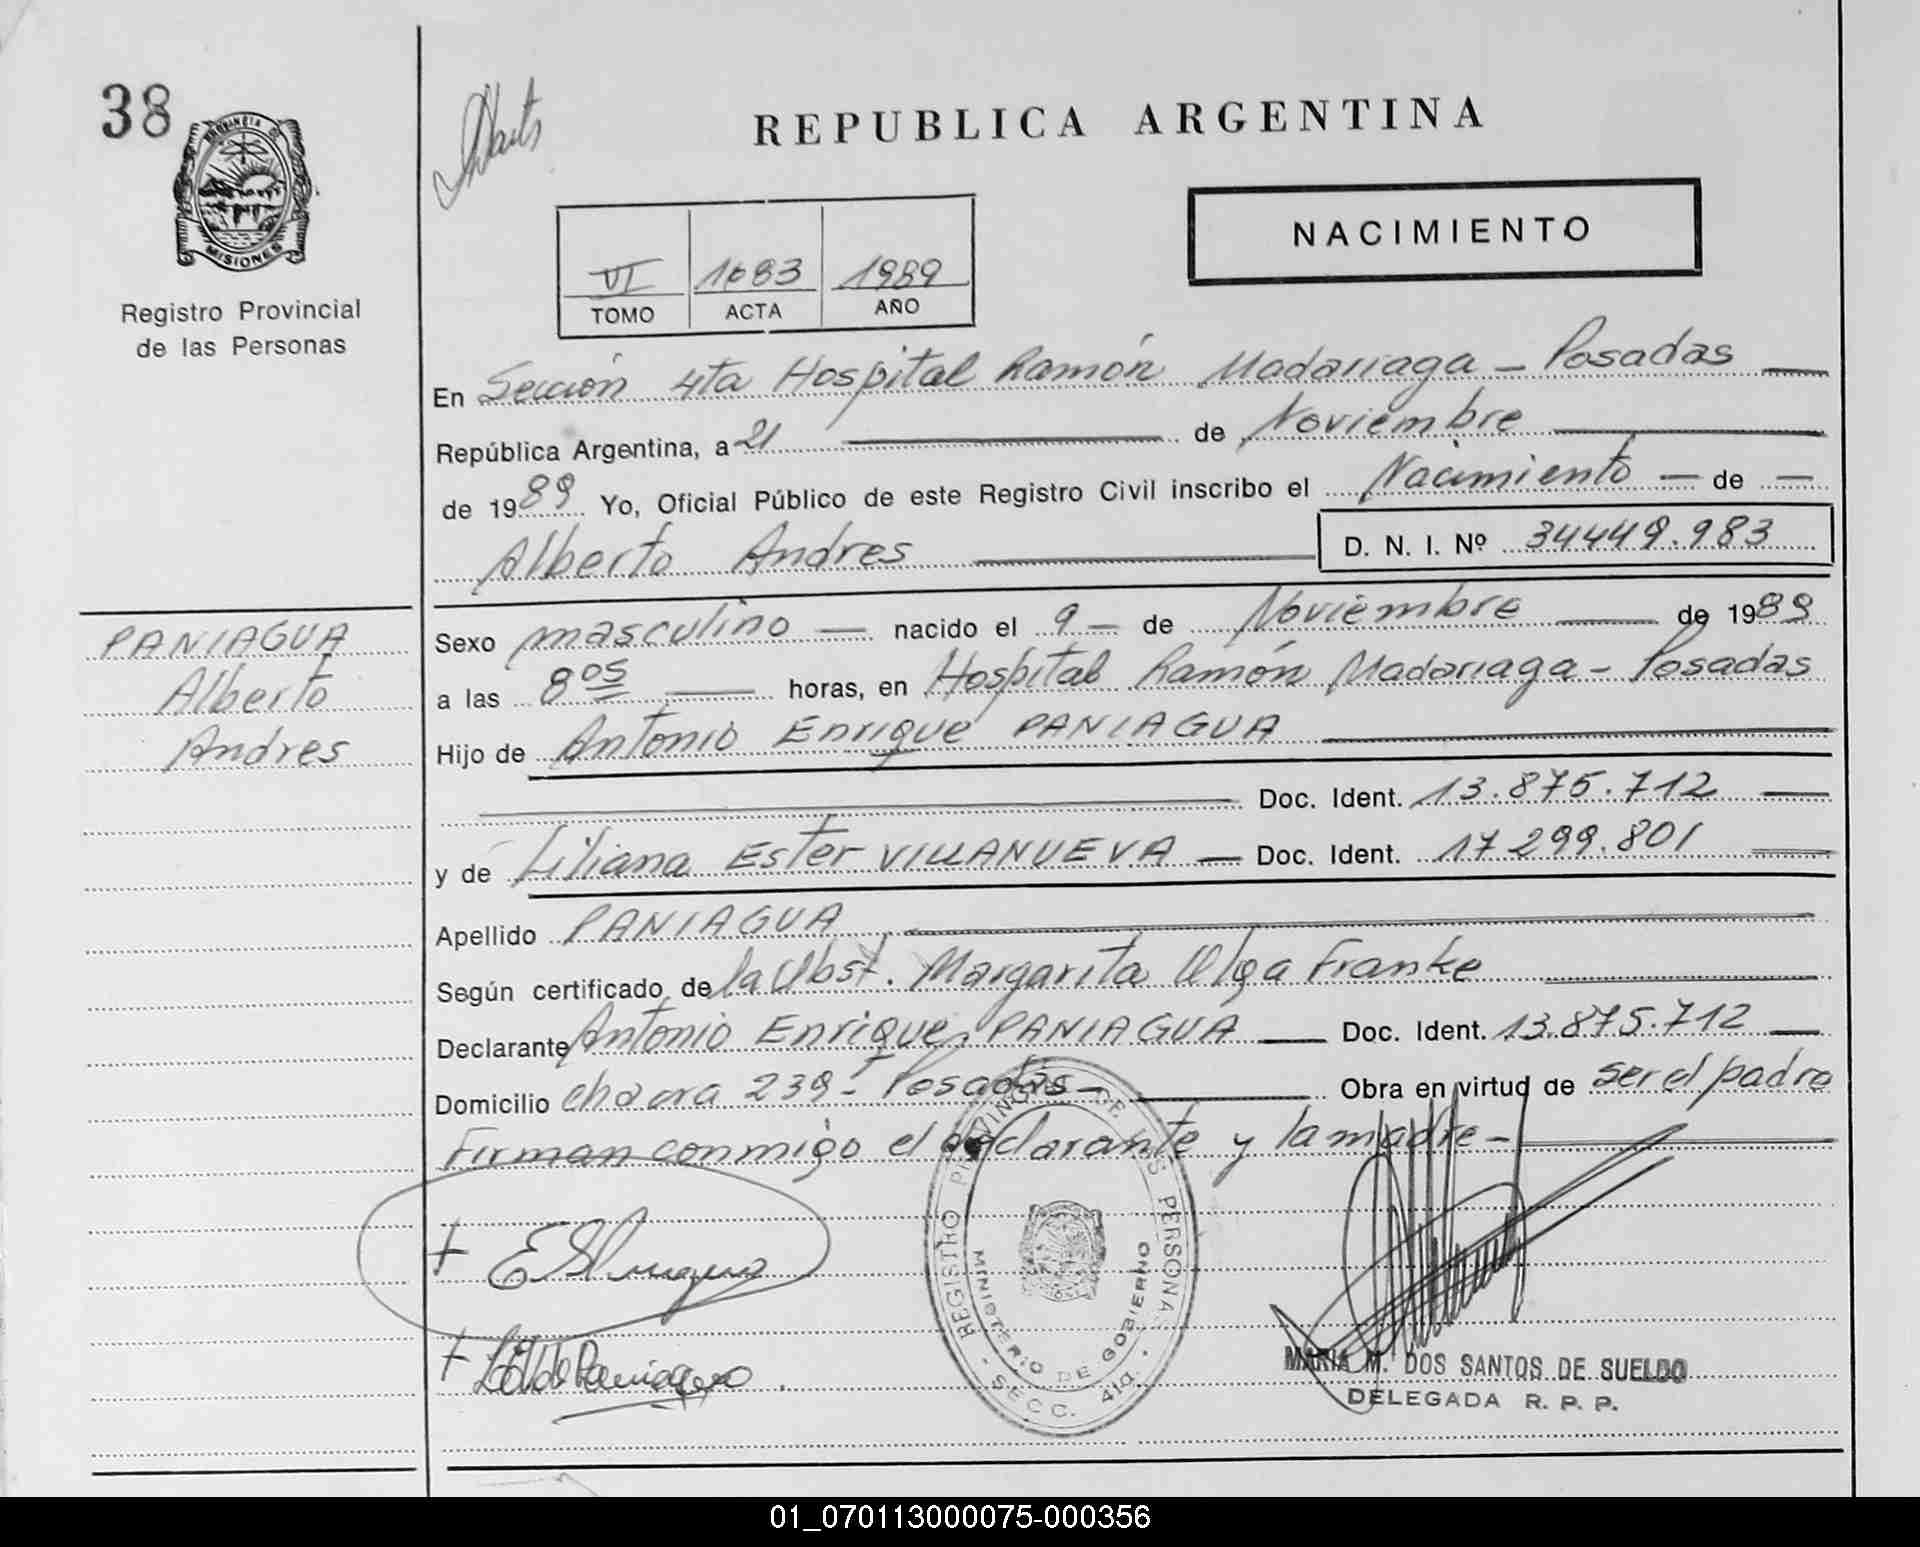 38
PROVINCIA DE
MISIONES
Registro Provincial
de las Personas
REPUBLICA ARGENTINA
NACIMIENTO
VI 1683 1989
TOMO ACTA AÑO
En Sección 4ta Hospital Ramón Madariaga - Posadas —
República Argentina, a 21 — de Noviembre —
de 1989 Yo, Oficial Público de este Registro Civil inscribo el Nacimiento — de —
Alberto Andres — D. N. I. Nº 34449.983
PANIAGUA
Alberto
Andres
Sexo masculino — nacido el 9 — de Noviembre — de 1989
a las 8 05 — horas, en Hospital Ramón Madariaga - Posadas
Hijo de Antonio Enrique PANIAGUA —
— Doc. Ident. 13.875.712 —
y de Liliana Ester VILLANUEVA — Doc. Ident. 17 299.801 —
Apellido PANIAGUA —
Según certificado de la Obst. Margarita Olga Franke —
Declarante Antonio Enrique PANIAGUA — Doc. Ident. 13.875.712 —
Domicilio chacra 239 - Posadas — Obra en virtud de ser el padre
Firman conmigo el declarante y la madre —
REGISTRO PROVINCIAL DE LAS PERSONAS
MINISTERIO DE GOBIERNO
- SECC. 4ta. -
MARIA M. DOS SANTOS DE SUELDO
DELEGADA R. P. P.
01_070113000075-000356